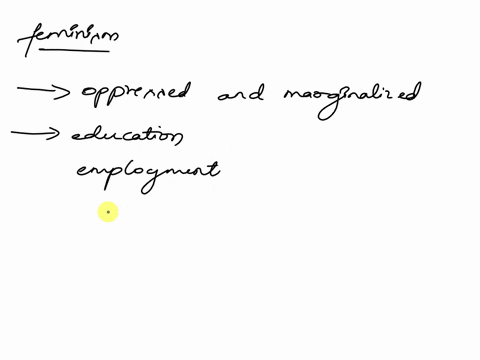 feminism
→ oppressed and marginalized
→ education
employment